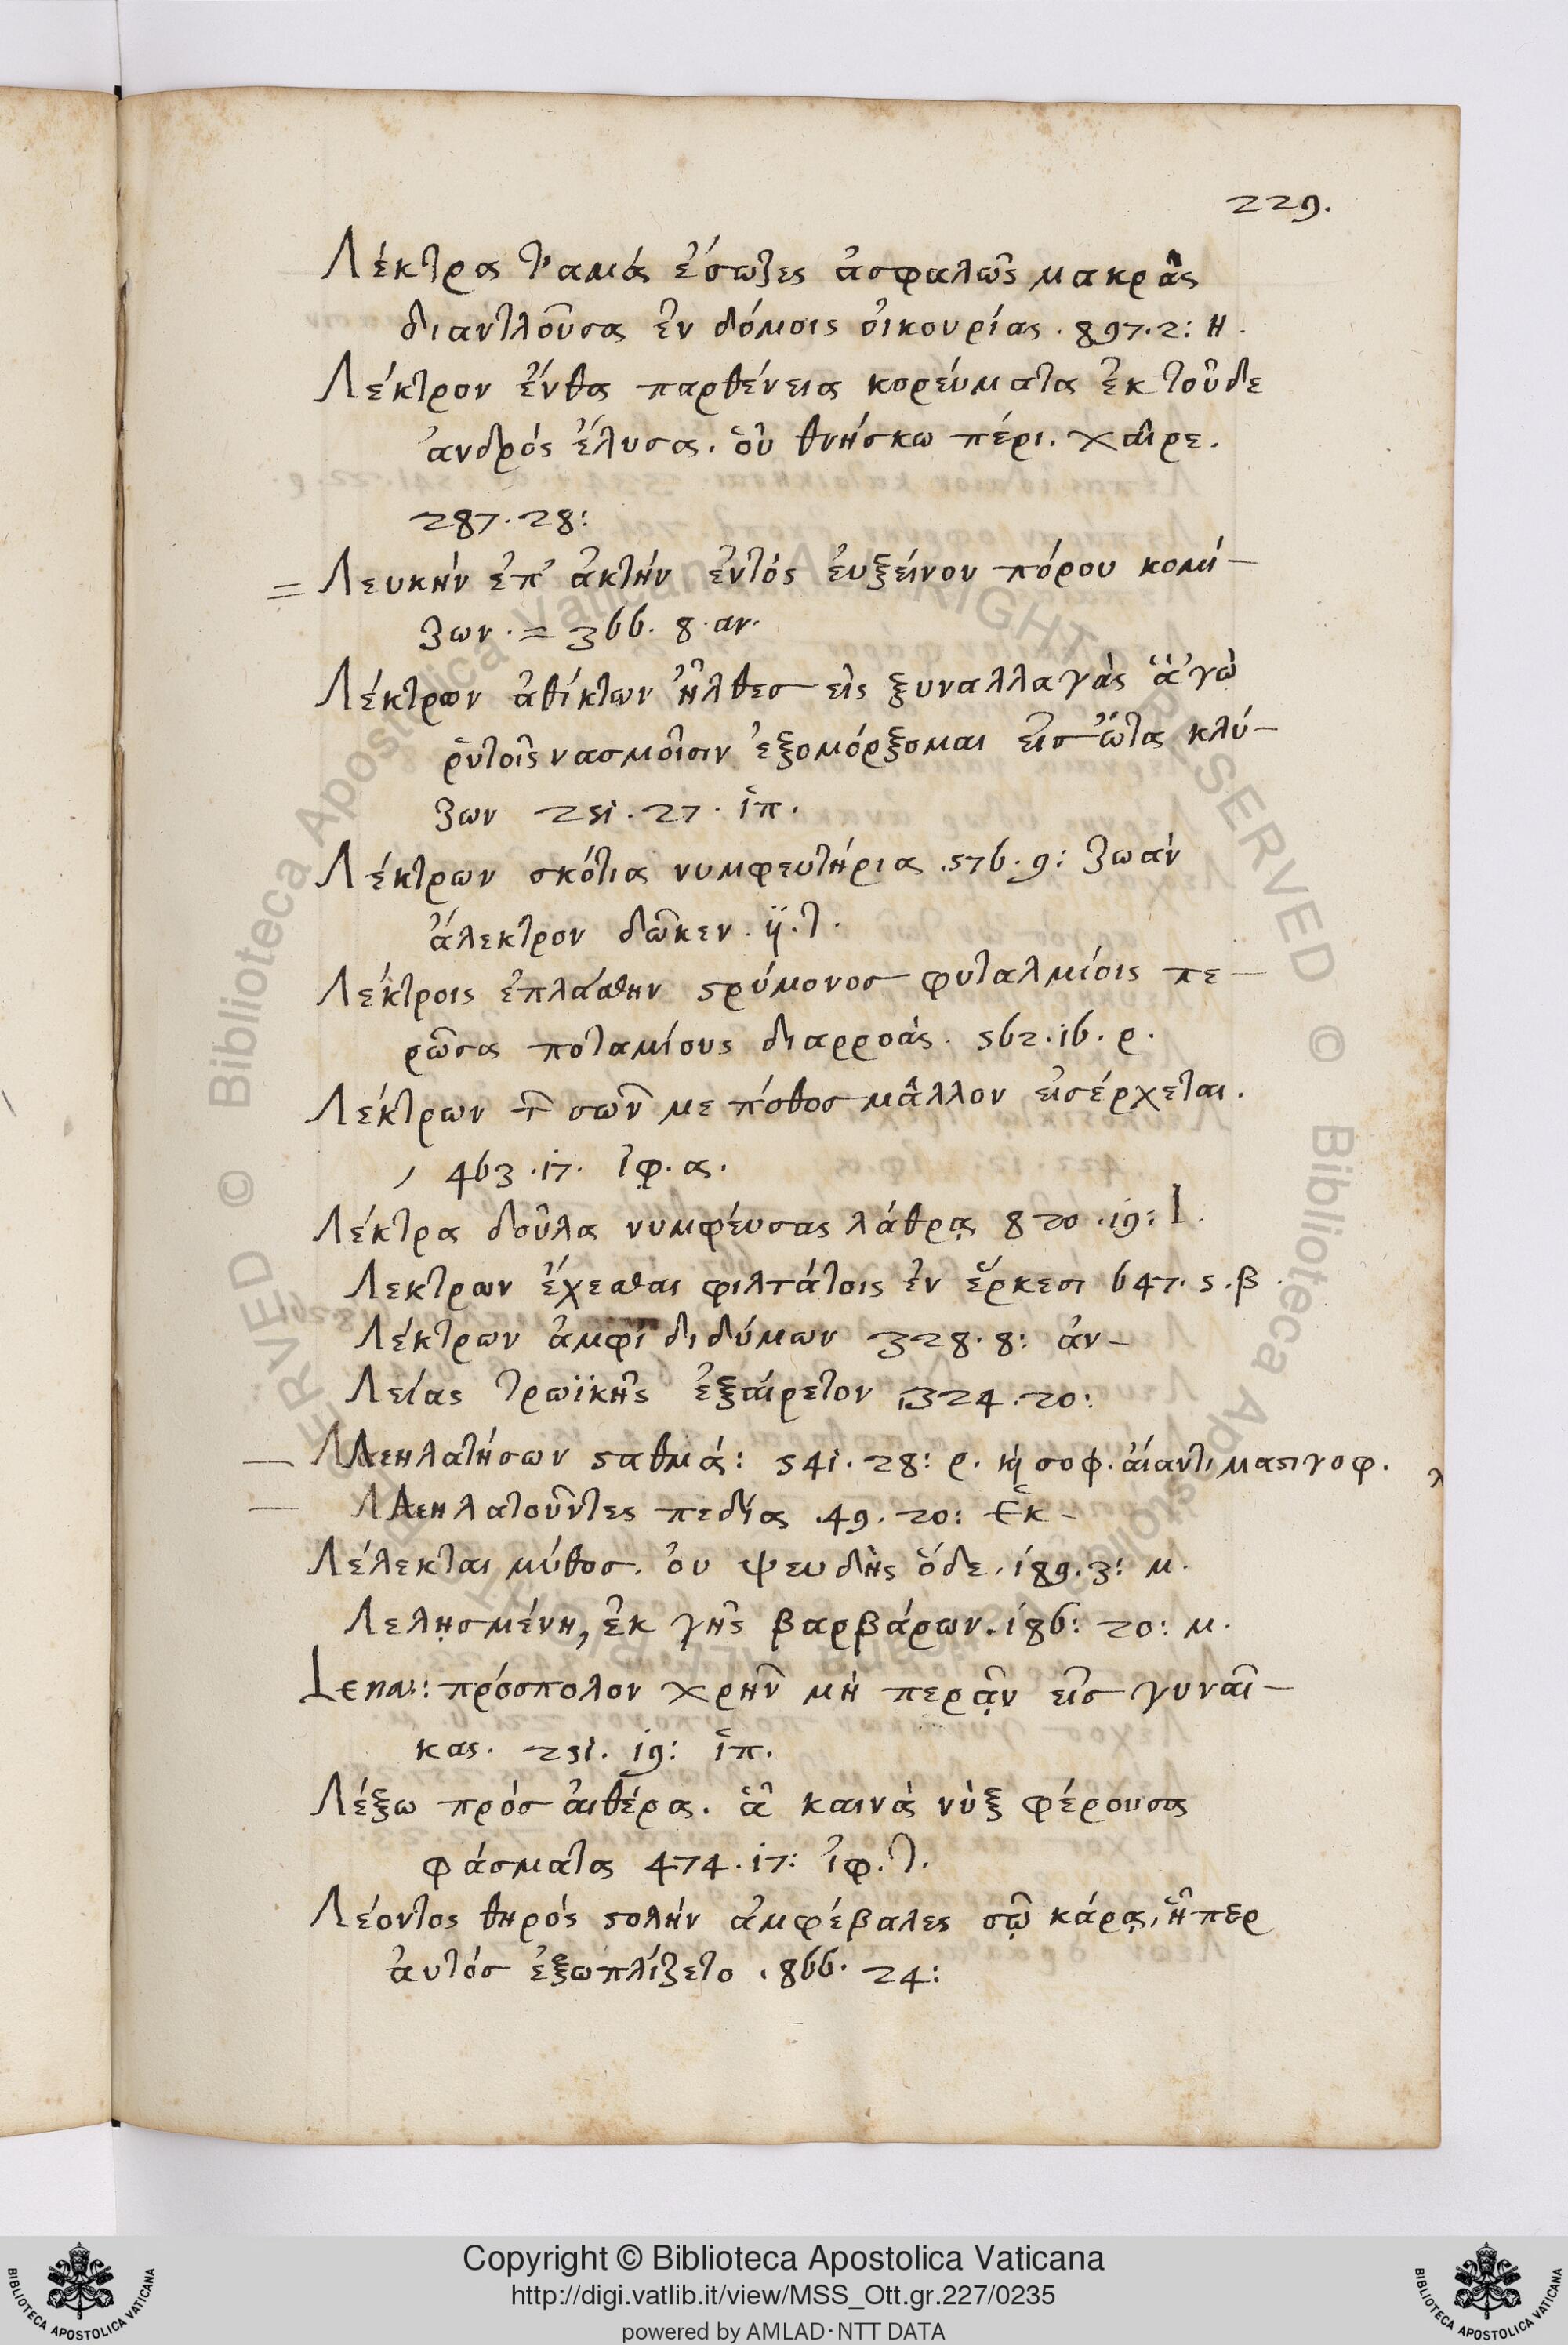 229.
Λέκτρα τ' ἀμὰ ἔσωζες ἀσφαλῶς μακρὰς
διαντλοῦσα ἐν δόμοις οἰκουρίας . 897. 2: Η.
Λέκτρον ἔνθα παρθένεια κορεύματα ἐκ τοῦδε
ἀνδρός ἔλυσα. οὗ θνήσκω πέρι. χαῖρε.
287. 28:
= Λευκὴν ἐπ' ἀκτὴν ἐντὸς ἐυξείνον πόρου κομί-
ζων. = 366. 8. αν.
Λέκτρων ἀθίκτων ἦλθες εἰς ξυναλλαγὰς ἁ 'γὼ
ῥυτοῖς νασμοῖσιν ἐξομόρξομαι εἰς ὦτα κλύ-
ζων 251. 27. ἱπ.
Λέκτρων σκότια νυμφευτήρια .576. 9: ζωὰν
ἄλεκτρον δῶκεν. ij. τ.
Λέκτροις ἐπλάθην ϛρύμονος φυταλμίοις πε-
ρῶσα ποταμίους διαρροάς. 562. 16. ρ.
Λέκτρων τῶν σῶν με πόθος μᾶλλον εἰσέρχεται.
463. 17. ἰφ. α.
Λέκτρα δοῦλα νυμφεύσας λάθρᾳ 820. 19: Ι.
Λεκτρων ἔχεσθαι φιλτάτοις ἐν ἕρκεσι 647. 5. β.
Λέκτρων ἀμφὶ διδύμων 328. 8: ἀν-
Λείας τρωϊκῆς ἐξαίρετον 1324. 20:
— Λεηλατήσων ϛαθμά: 541. 28: ρ. καὶ σοφ. ἀίαντι μαϛιγοφ.
— Λεηλατοῦντες πεδία .49. 20: Ἑκ-
Λέλεκται μύθος. ὀυ ψευδὴς ὅδε. 189. 3: μ.
Λελησμένη, ἐκ γῆς βαρβάρων. 186: 20: μ.
Lena: πρόσπολον χρῆν μὴ περᾶν εἰς γυναῖ-
κας. 251. 19: ἱπ.
Λέξω πρὸς ἀιθέρα. ἃ καινὰ νὺξ φέρουσα
φάσματα 474. 17: ἰφ. τ.
Λέοντος θηρὸς ϛολὴν ἀμφέβαλες σῷ κάρᾳ, ᾗπερ
ἀυτὸς ἐξωπλίζετο . 866. 24:
Copyright © Biblioteca Apostolica Vaticana
http://digi.vatlib.it/view/MSS_Ott.gr.227/0235
powered by AMLAD·NTT DATA
BIBLIOTECA APOSTOLICA VATICANA
BIBLIOTECA APOSTOLICA VATICANA